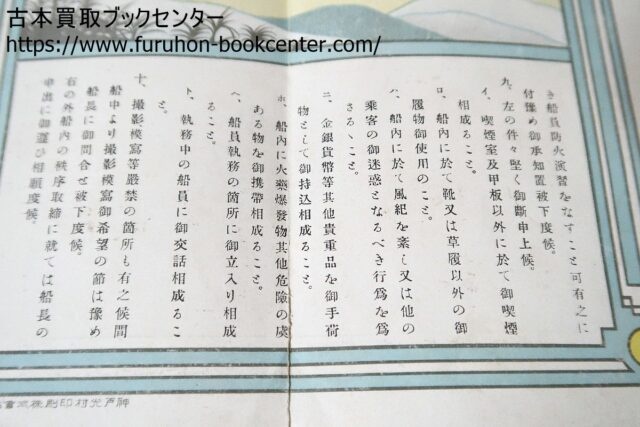 古本買取ブックセンター
https://www.furuhon-bookcenter.com/
き船員防火演習をなすこと可有之に
付豫め御承知置被下度候。
九、左の件々堅く御斷申上候。
イ、喫煙室及甲板以外に於て御喫煙
相成ること。
ロ、船內に於て靴又は草履以外の御
履物御使用のこと。
ハ、船內に於て風紀を紊し又は他の
乘客の御迷惑となるべき行爲を爲
さるゝこと。
ニ、金銀貨幣等其他貴重品を御手荷
物として御持込相成ること。
ホ、船內に火藥爆發物其他危險の虞
ある物を御携帶相成ること。
ヘ、船員執務の箇所に御立入り相成
ること。
ト、執務中の船員に御交話相成るこ
と。
十、撮影模寫等嚴禁の箇所も有之候間
船中より撮影模寫御希望の節は豫め
船長に御問合せ被下度候。
右の外船內の秩序取締に就ては船長の
申出に御遵ひ相願度候。
神戶光村印刷株式會社